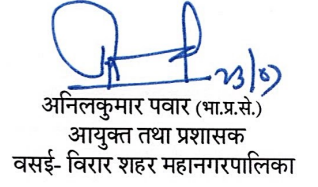 23/07
अनिलकुमार पवार (भा.प्र.से.)
आयुक्त तथा प्रशासक
वसई- विरार शहर महानगरपालिका